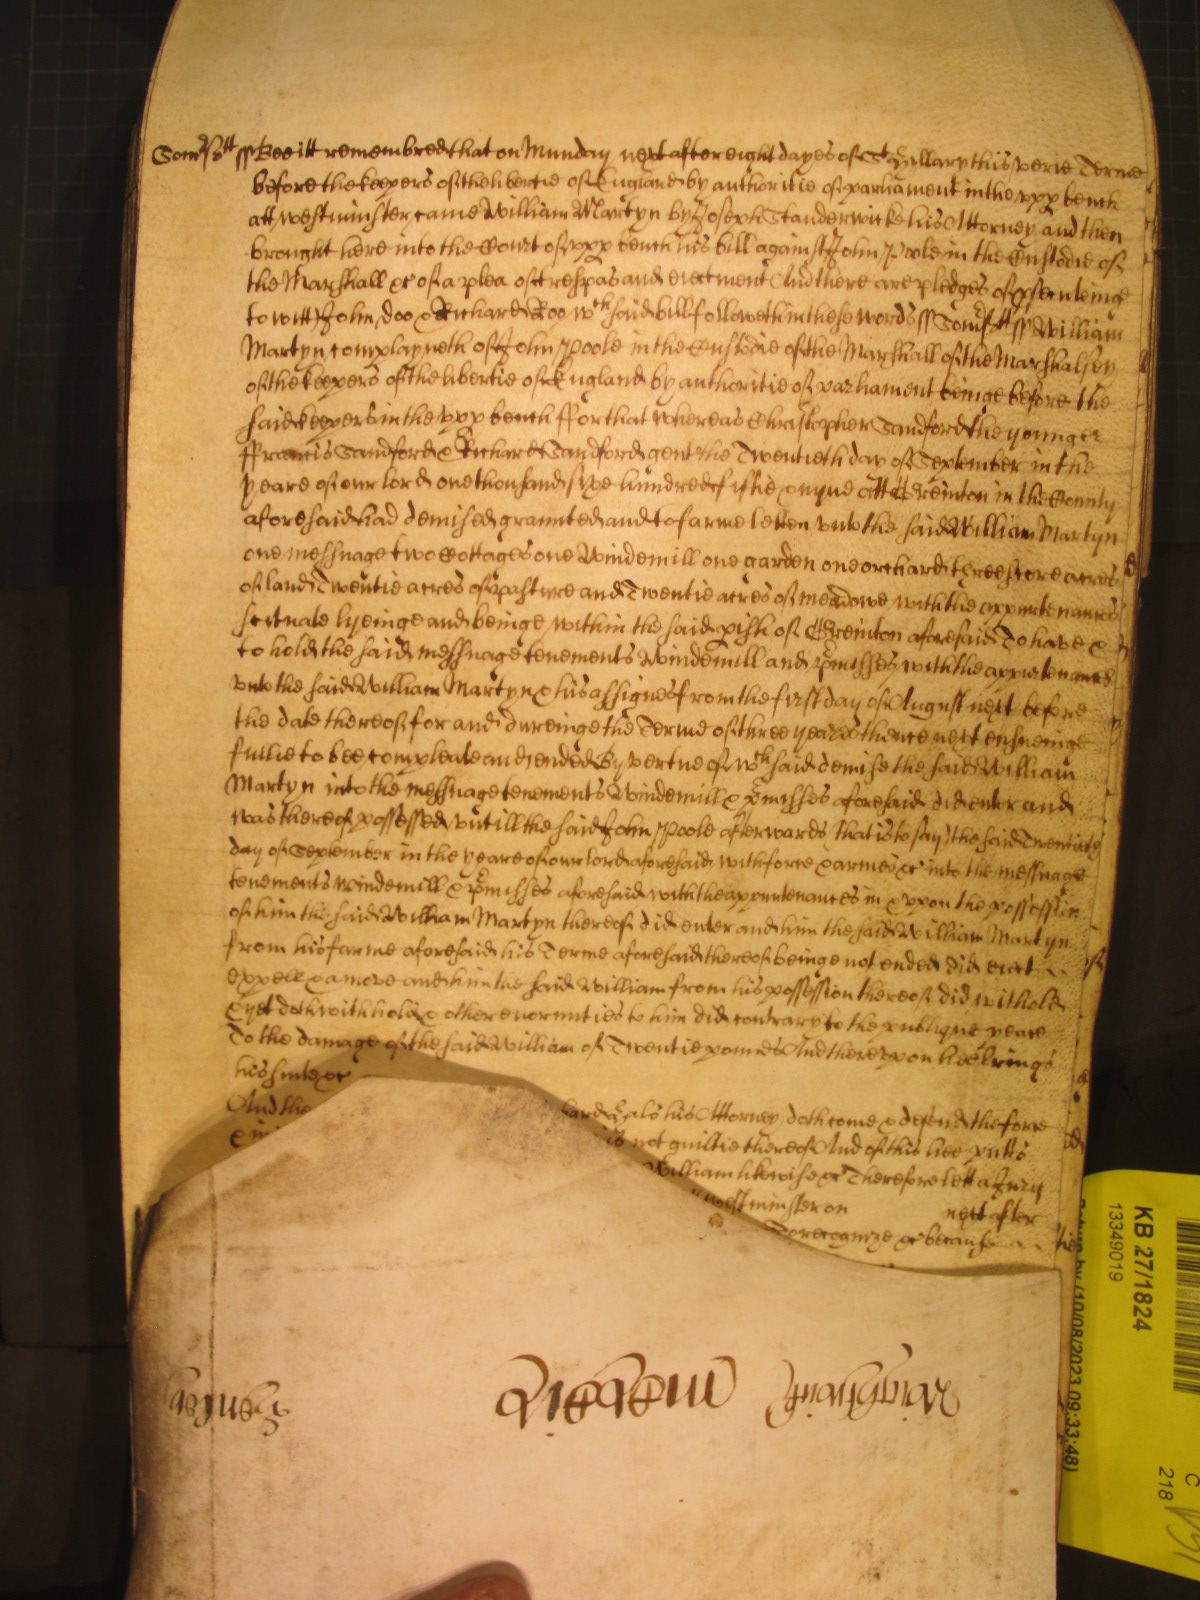 Somss:tt ss Bee itt remembred that on Munday next after eight dayes of St Hillary this verie Terme
before the keepers of the libertie of England by authoritie of parliament in the vpp bench
att Westminster came William Martyn by Joseph Standerwicke his Attorney and then
brought here into the Court of vpp bench his bill against John Poole in the Custodie of
the Marshall &c of a plea of trespas and eiectment And there are pledges of psecuteinge
to witt John Doo & Richard Roo wch said bill followeth in these words ss Somss:tt ss William
Martyn complayneth of John Poole in the Custodie of the Marshall of the Marshalsey
of the keepers of the libertie of England by authoritie of parliament beinge before the
said keepers in the vpp bench ffor that whereas Christopher Sandford the younger
ffrancis Sandford & Richard Sandford gent the Twentieth day of September in the
yeare of our lord one thousand sixe hundred fiftie & nyne att Greinton in the County
aforesaid had demised graunted and to farme letten vnto the said William Martyn
one messuage two Cottages one Windemill one garden one orchard threescore acres
of land Twentie acres of pasture and Twentie acres of meadowe with the appurtenances
scituate lyeinge and beinge within the said pish of Greinton aforesaid To have &
to hold the said messuage tenements Windemill and pmisses with the appurtenances
vnto the said William Martyn & his assignes from the first day of August next before
the date thereof for and dureinge the Terme of three yeares thence next ensueinge
fullie to bee compleate and ended By vertue of wch said demise the said William
Martyn into the messuage tenements Windemill & pmisses aforesaid did enter and
was thereof possessed vntill the said John Poole afterwards that is to say the said Twentieth
day of September in the yeare of our lord aforesaid with force & armes &c into the messuage
tenements Windemill & pmisses aforesaid with the appurtenances in & vpon the possession
of him the said William Martyn thereof did enter and him the said William Martyn
from his farme aforesaid his Terme aforesaid thereof beinge not ended did eiect
expell & amove and him the said William from his possession thereof did withold
& yet doth withhold & other enormities to him did contrary to the publique peace
To the damage of the said William of Twentie pounds And therevpon hee brings
his sute &c
And the hard Hals his Attorney doth come & defend the force
is not guiltie thereof And of this hee putts
William likewise &c Therefore lett a Jury
Westminster on next after
To recognize &c because
KB 27/1824
13349019
Return by (10/08/2023 09:33:48)
C
218